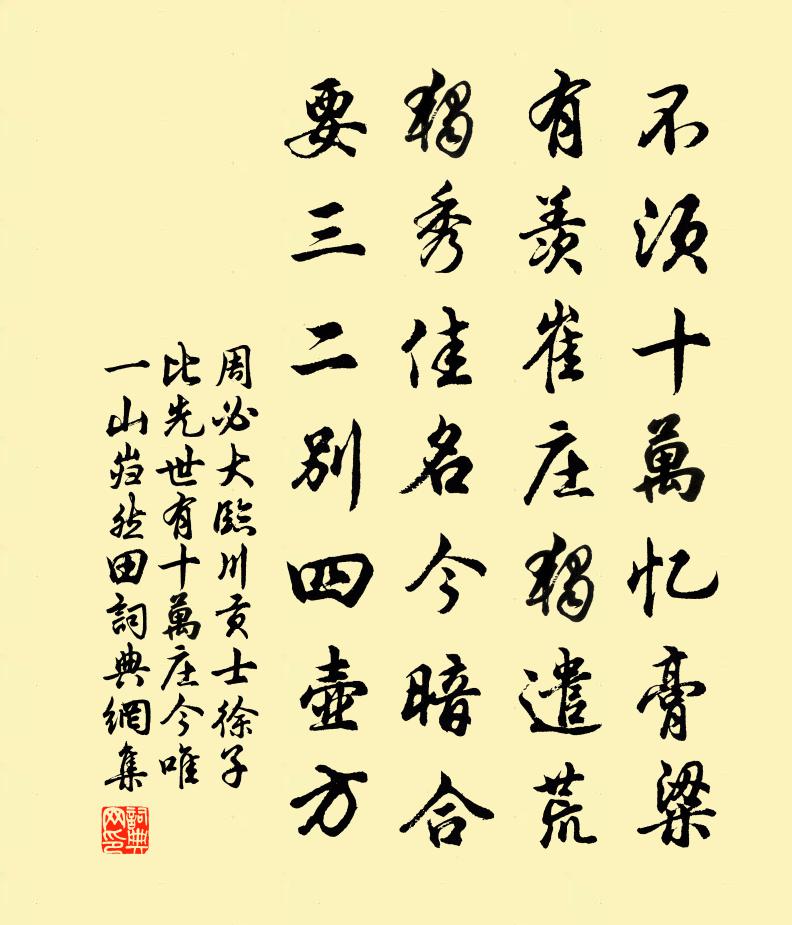 不須十萬忆膏粱
有羨崔庄獨遣荒
獨秀佳名今暗合
要三二別四壺方
周必大臨川貢士徐子
比先世有十萬庄今唯
一山岿然田詞典網集
詞典网印